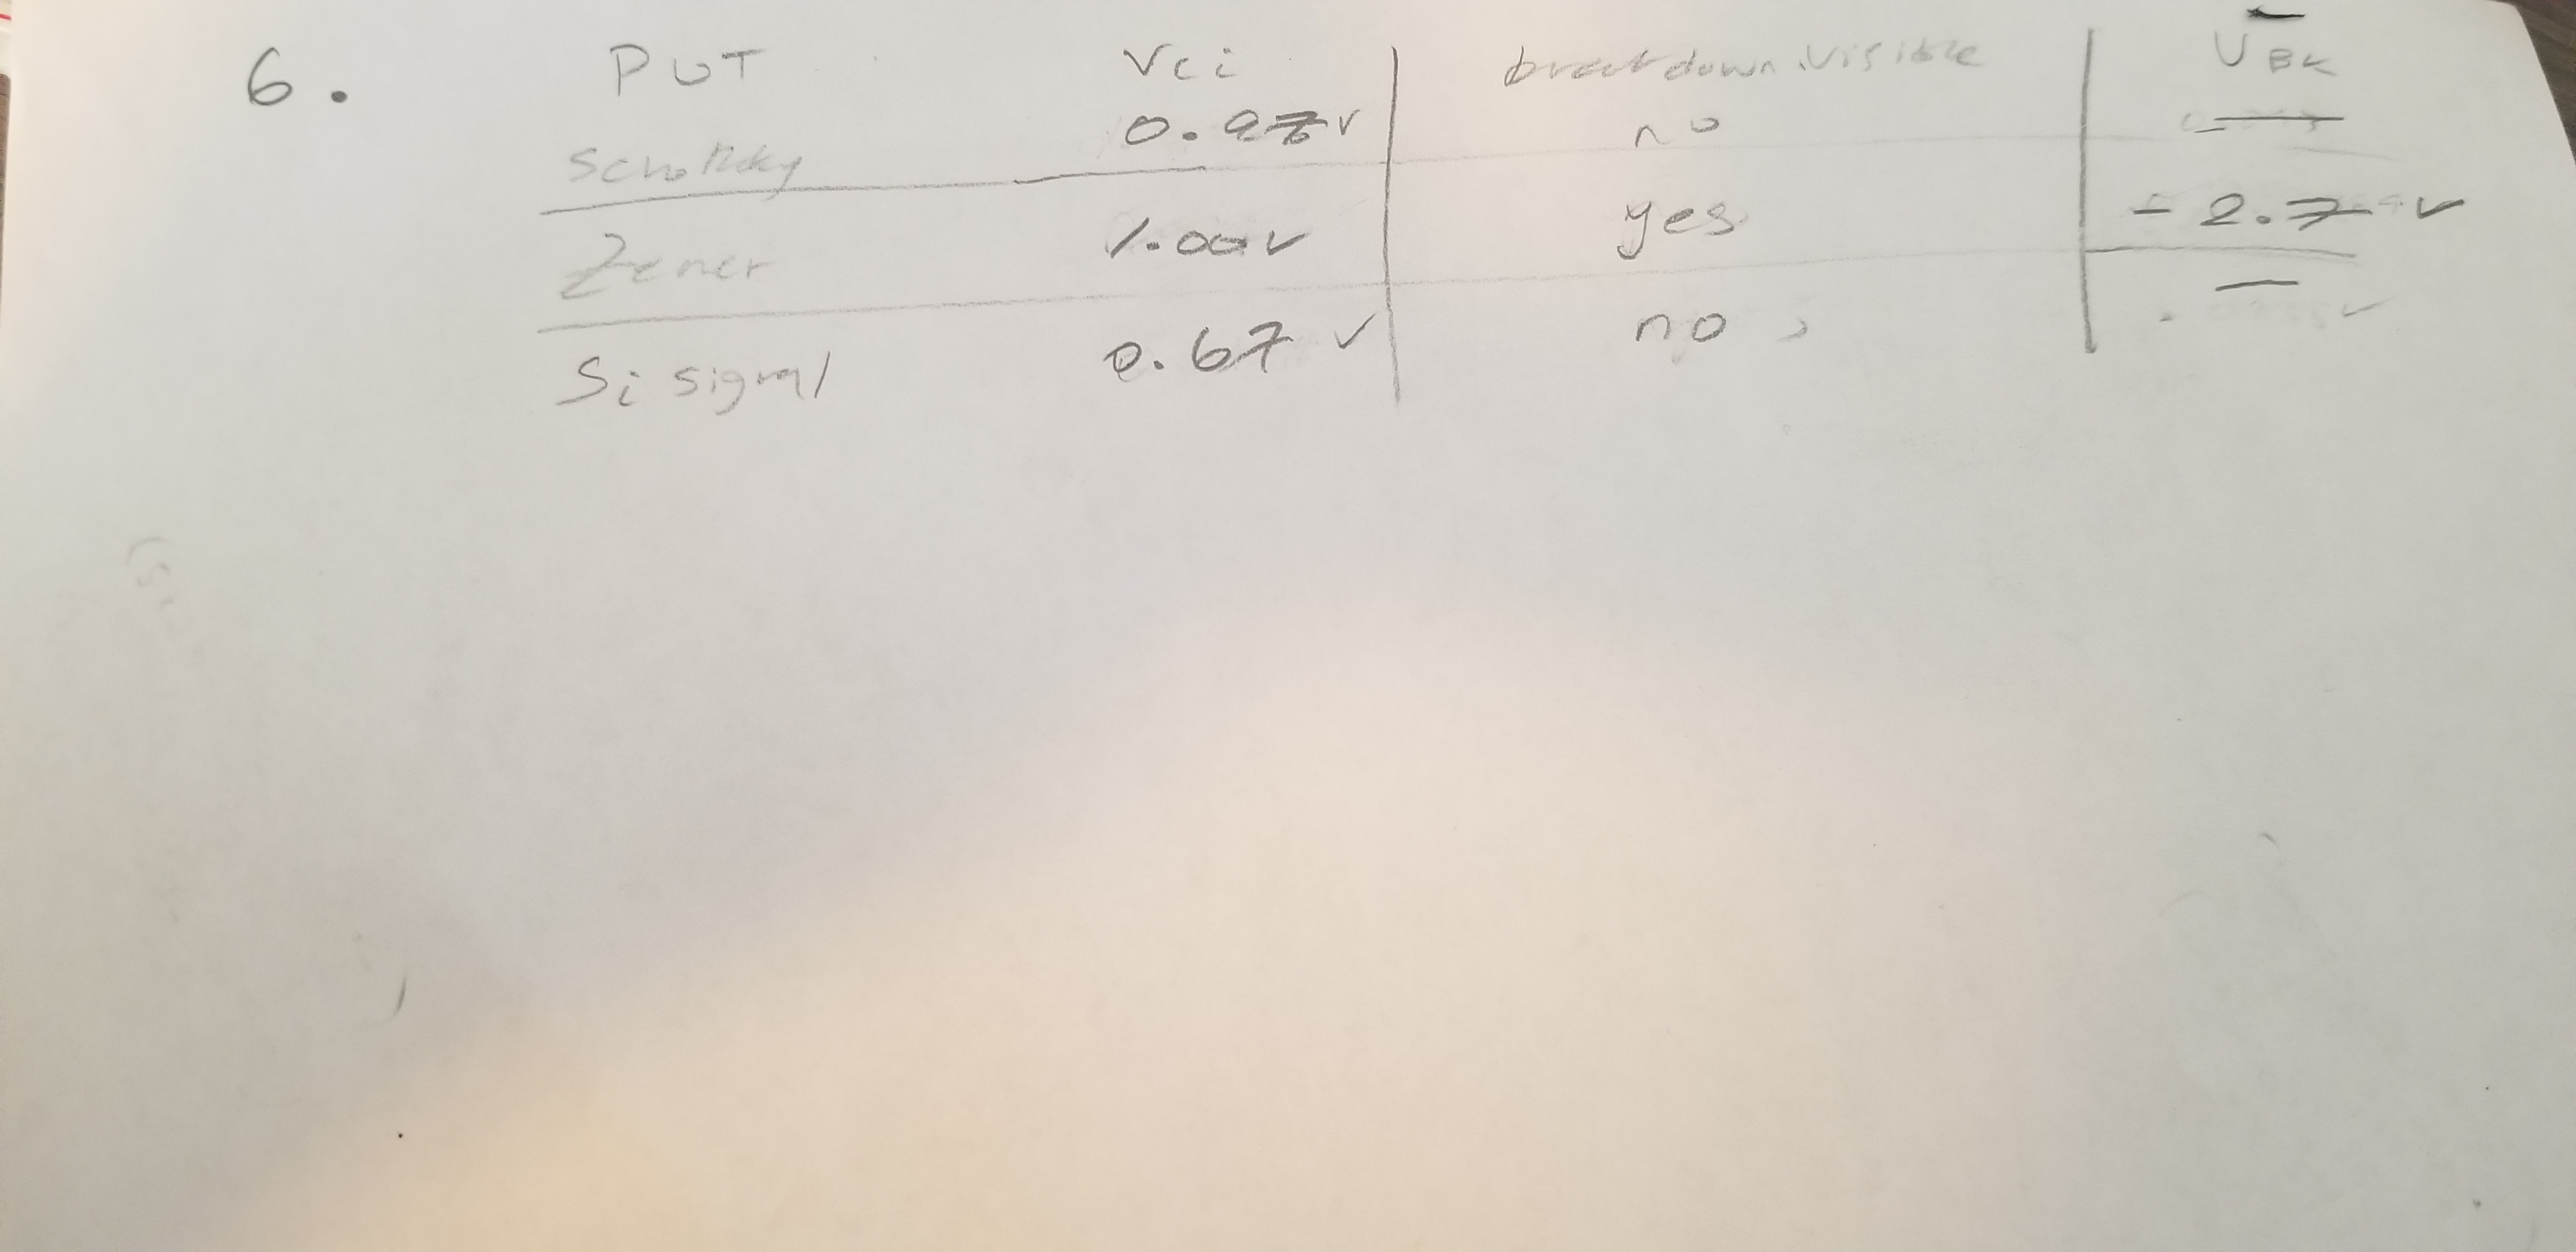 6.
DUT Vci breakdown visible VBK
Schottky 0.27v no —
Zener 1.00v yes -2.7 v
Si signl 0.67 v no —